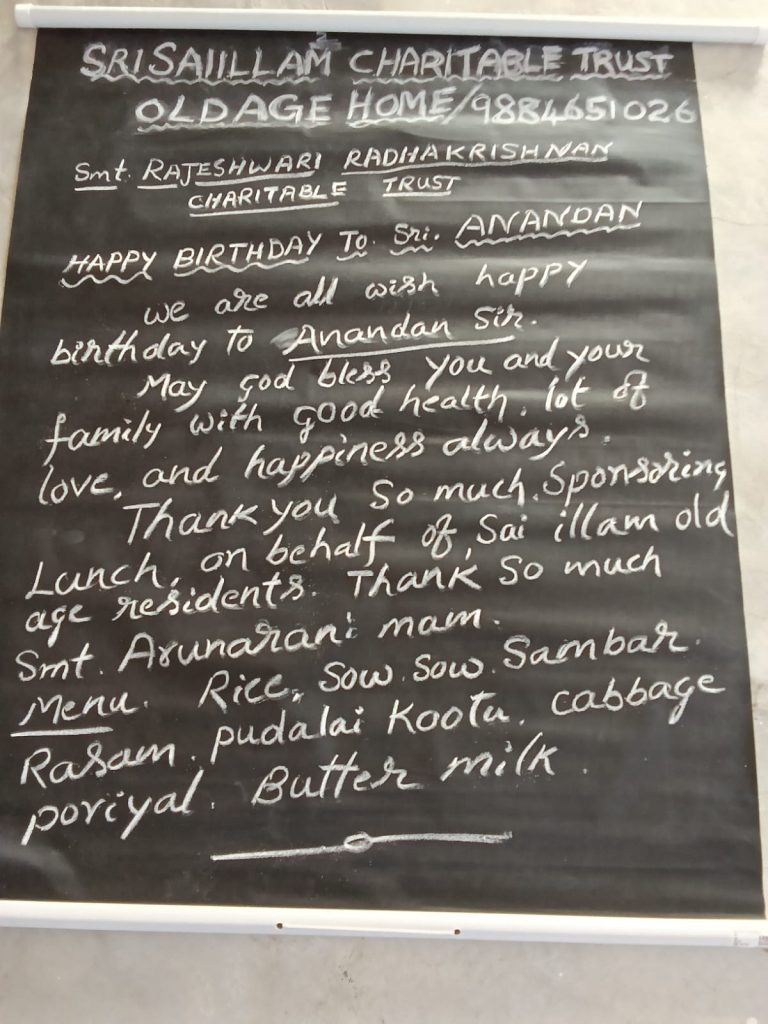 SRI SAI ILLAM CHARITABLE TRUST
OLD AGE HOME/9884651026
Smt. RAJESHWARI RADHAKRISHNAN
CHARITABLE TRUST
HAPPY BIRTHDAY TO Sri. ANANDAN
we are all wish happy
birthday to Anandan Sir.
May god bless you and your
family with good health. lot of
love, and happiness always.
Thank you So much. Sponsoring
Lunch, on behalf of, Sai illam old
age residents. Thank So much
Smt. Arunarani mam.
Menu. Rice, Sow. Sow. Sambar.
Rasam. pudalai Kootu. cabbage
poriyal. Butter milk.